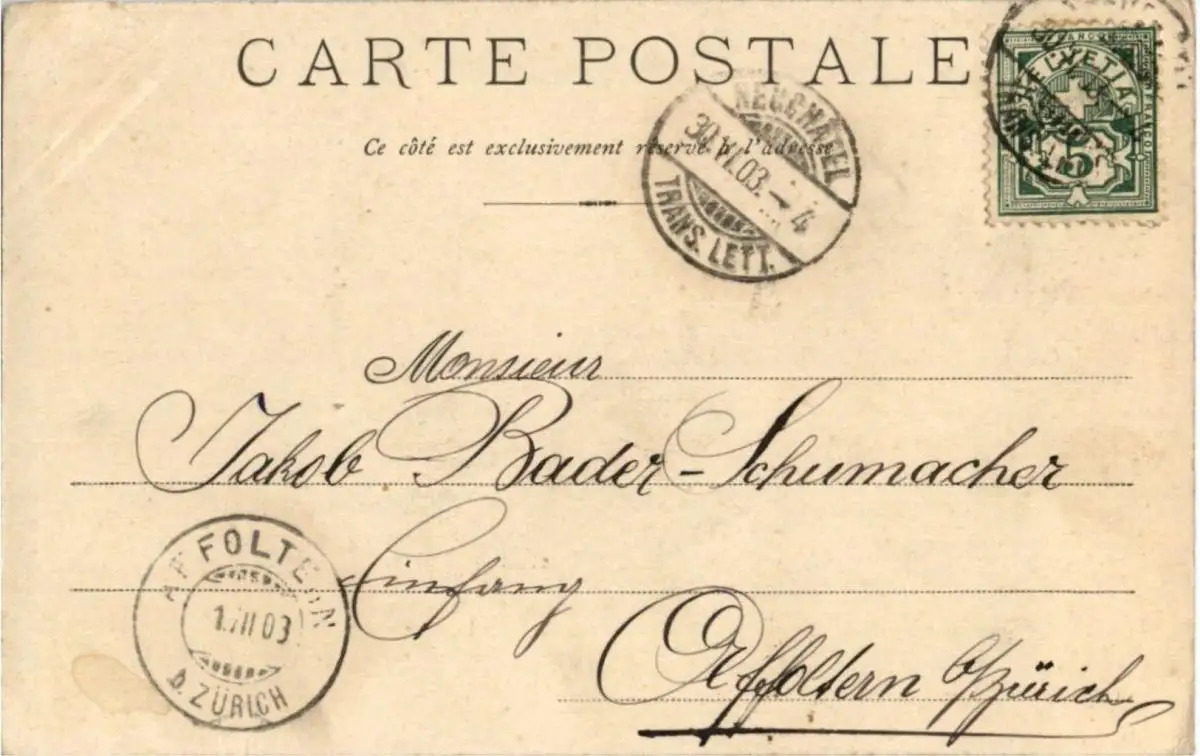 CARTE POSTALE
Ce côté est exclusivement réservé à l'adresse
NEUCHATEL
30.VI.03.–4
TRANS. LETT.
HELVETIA
5
Monsieur
Jakob Bader-Schumacher
Einfang
Affoltern b/Zürich
AFFOLTERN
1.VII 03
b. ZÜRICH